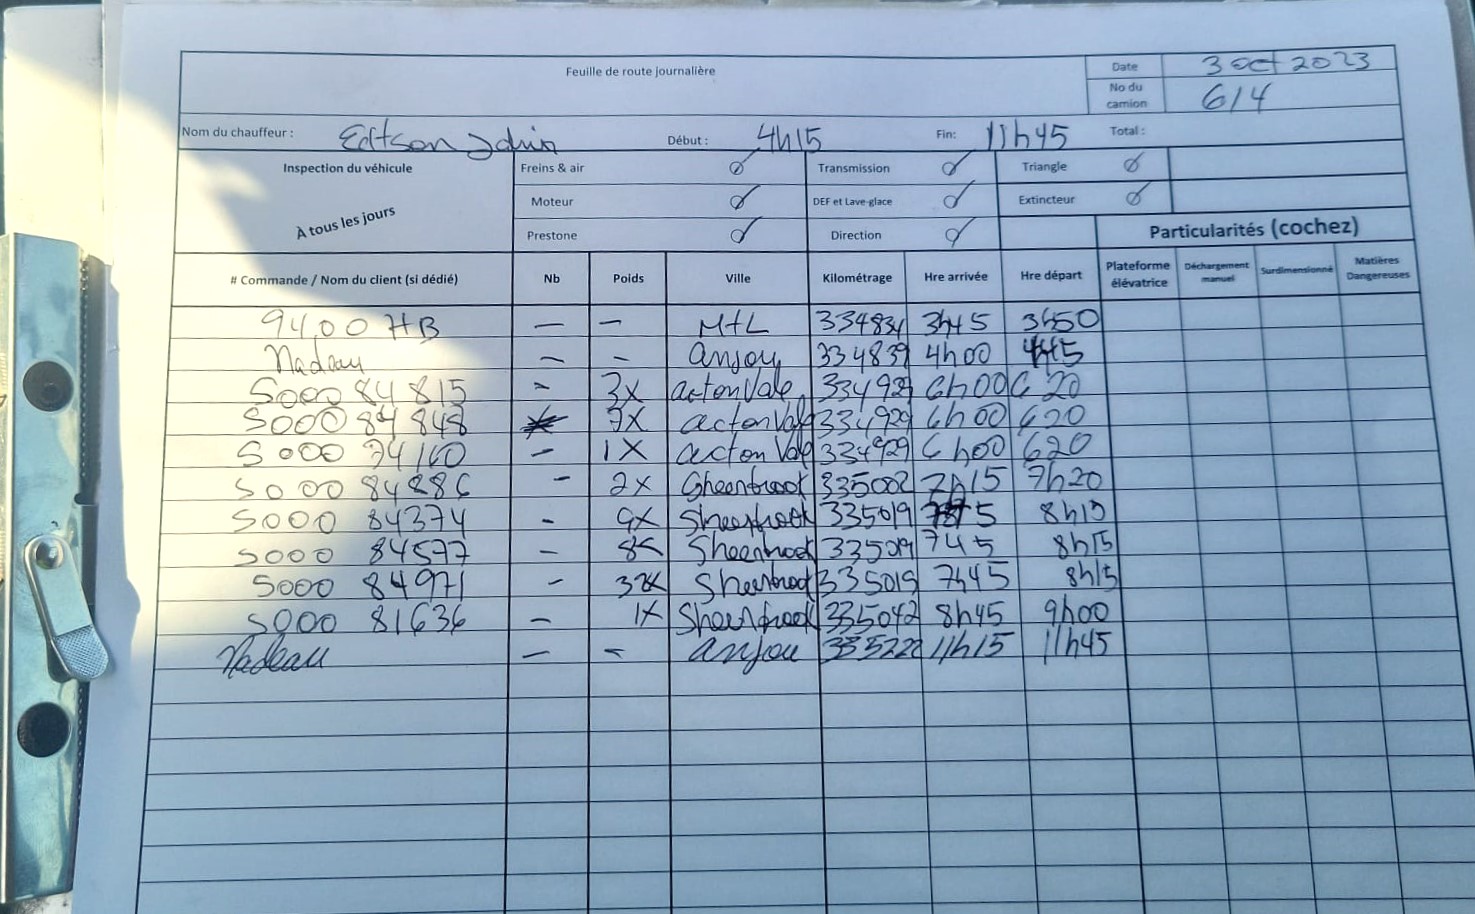 Feuille de route journalière
Date 3 oct 2023
No du camion 614
Nom du chauffeur : Edtson Début : 4h15 Fin: 11h45 Total :
Inspection du véhicule
À tous les jours
Freins & air Transmission Triangle
Moteur DEF et Lave-glace Extincteur
Prestone Direction
Particularités (cochez)
# Commande / Nom du client (si dédié) Nb Poids Ville Kilométrage Hre arrivée Hre départ Plateforme élévatrice Déchargement manuel Surdimensionné Matières Dangereuses
9400 HB — — MtL 334834 3h45 3h50
Nadeau - - anjou 334839 4h00 4h15
5000 84815 - 3X acton Vale 334929 6h00 620
5000 84848 7X acton Vale 334929 6h00 620
5000 74160 - 1X acton Vale 334929 6h00 620
5000 84286 - 2x 335002 7h15 7h20
5000 84374 - 9x 335019 8h15
5000 84577 - 8x 335019 745 8h15
5000 84971 - 335019 7h45 8h15
5000 81636 - 1X 335042 8h45 9h00
Nadeau — - anjou 335222 11h15 11h45